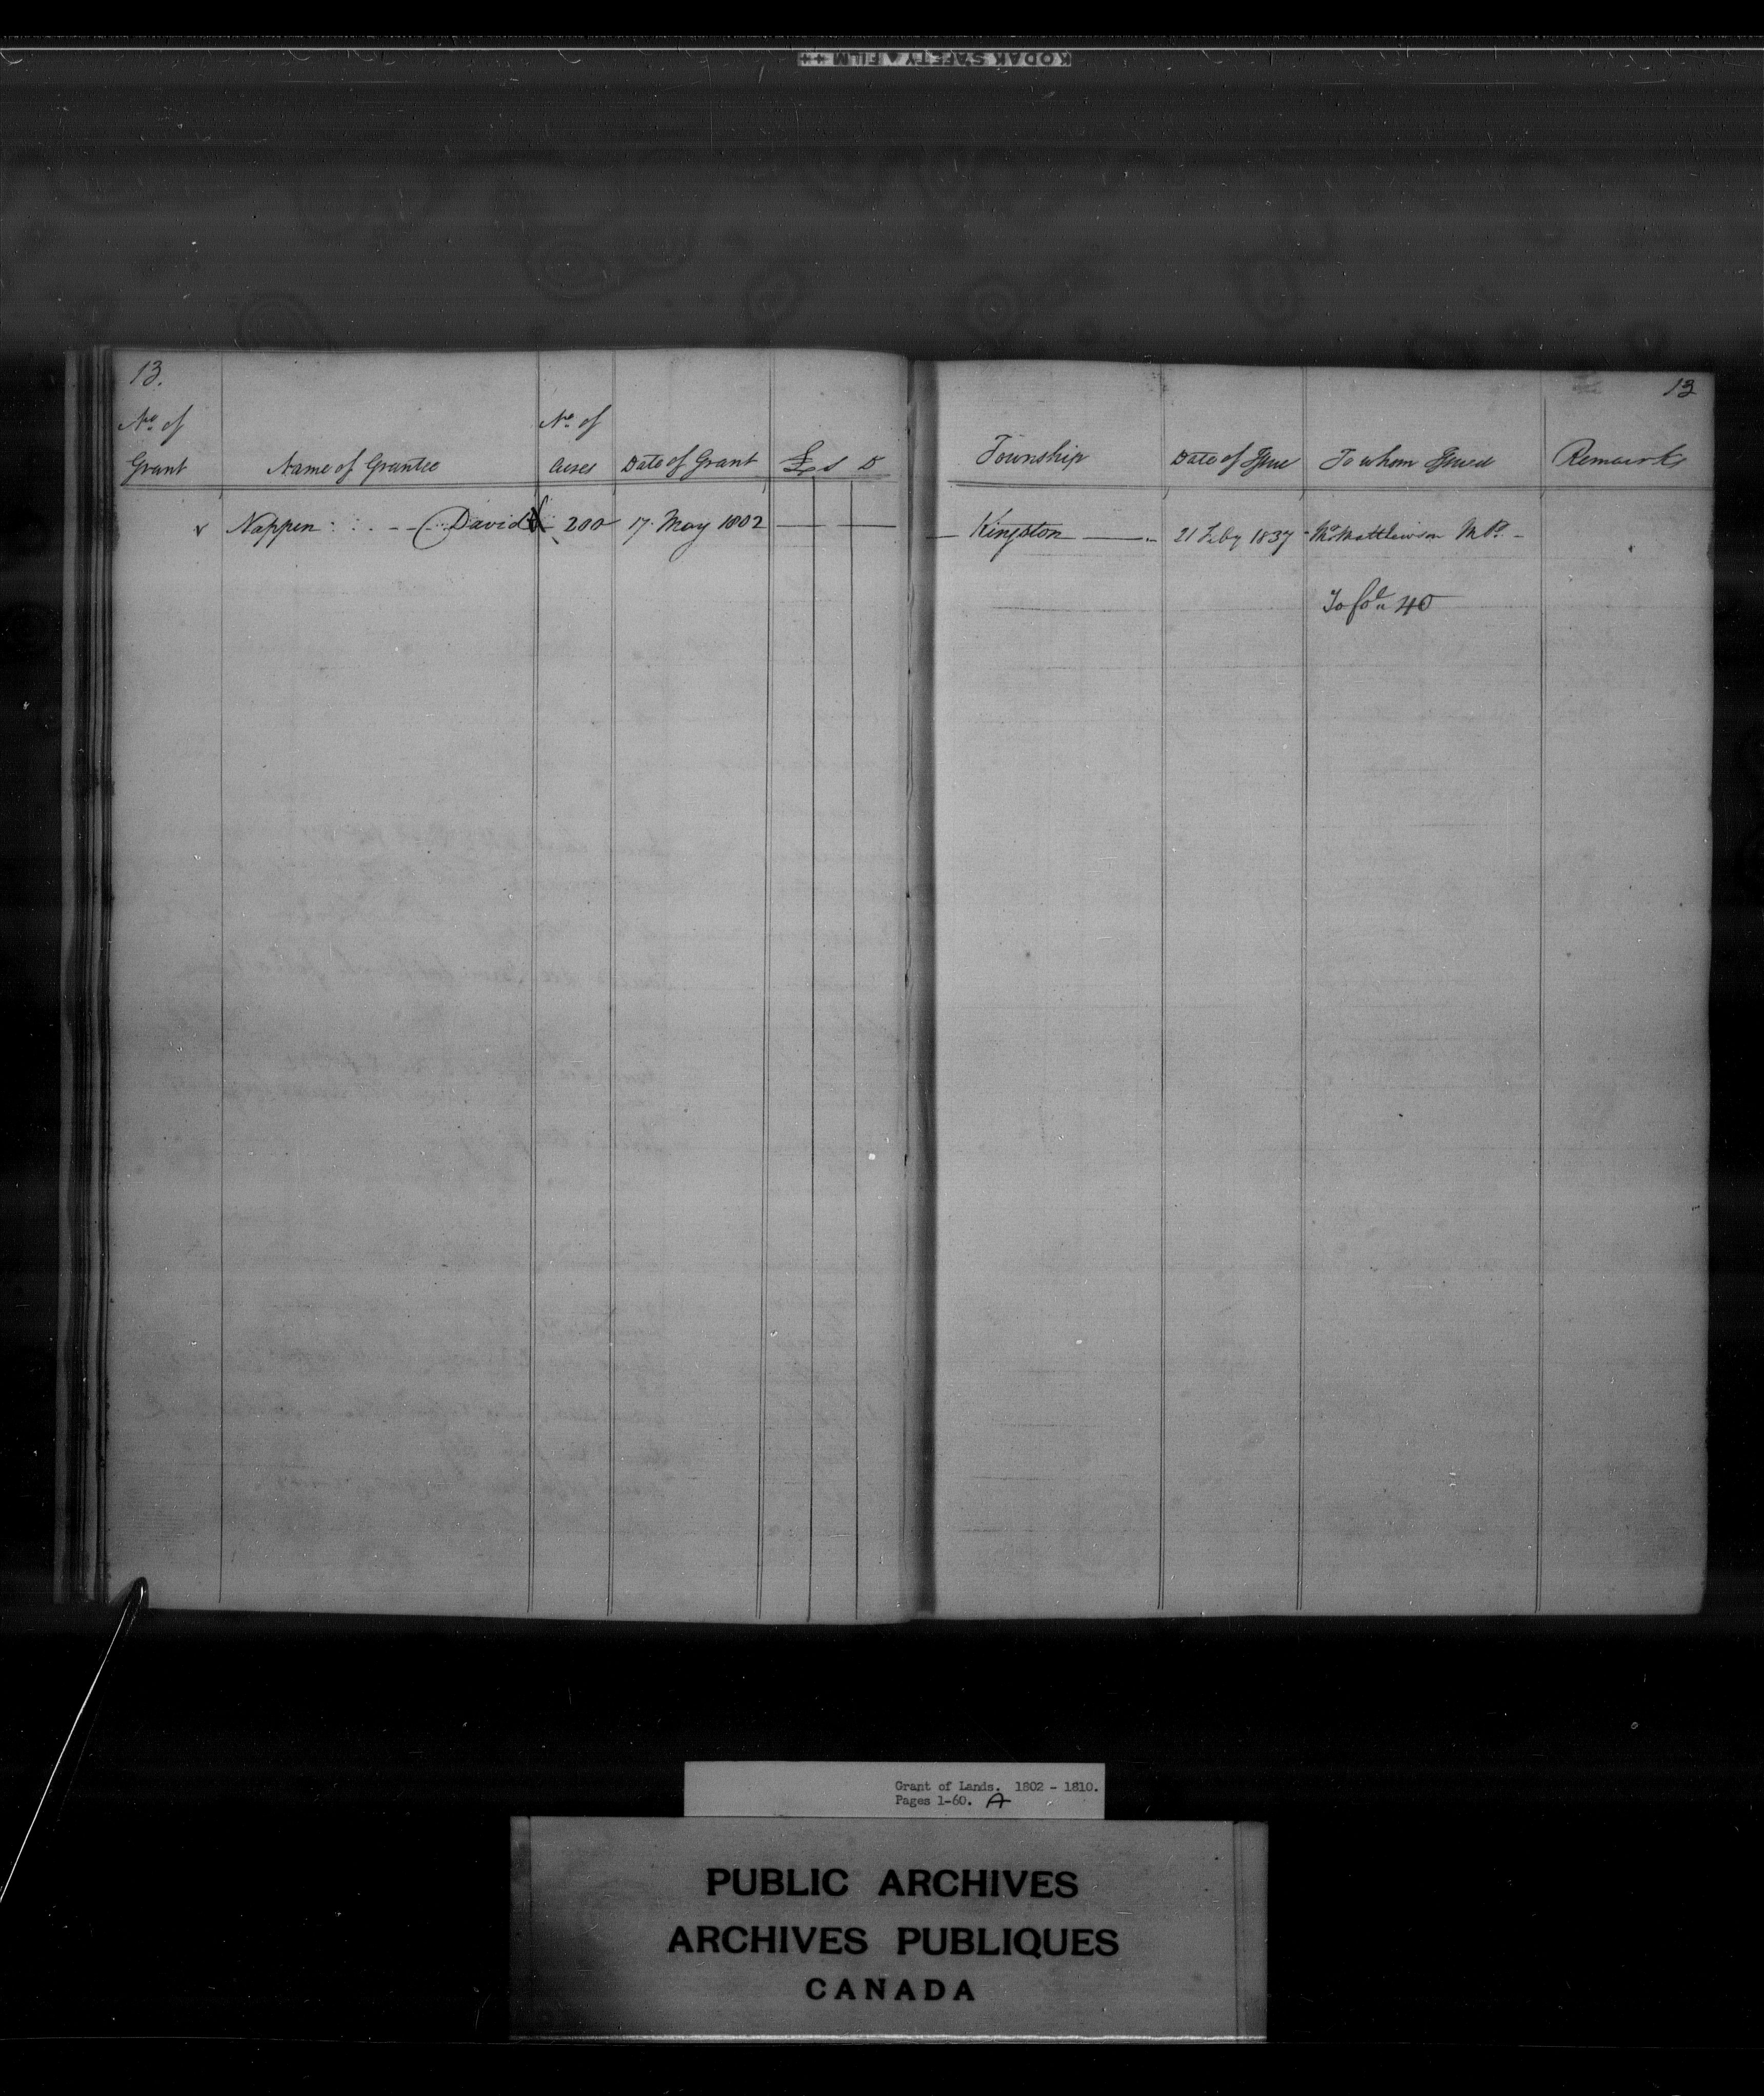 KODAK SAFETY ▲ FILM ++
13.
13
No. of Grant
Name of Grantee
No. of Acres
Date of Grant
£ s D
Township
Date of Issue
To whom Issued
Remarks
Nappen David 200 17. May 1802 Kingston 21 Feby 1837 Matthewson
To fol. 40
Grant of Lands. 1802 - 1810.
Pages 1-60. A
PUBLIC ARCHIVES
ARCHIVES PUBLIQUES
CANADA